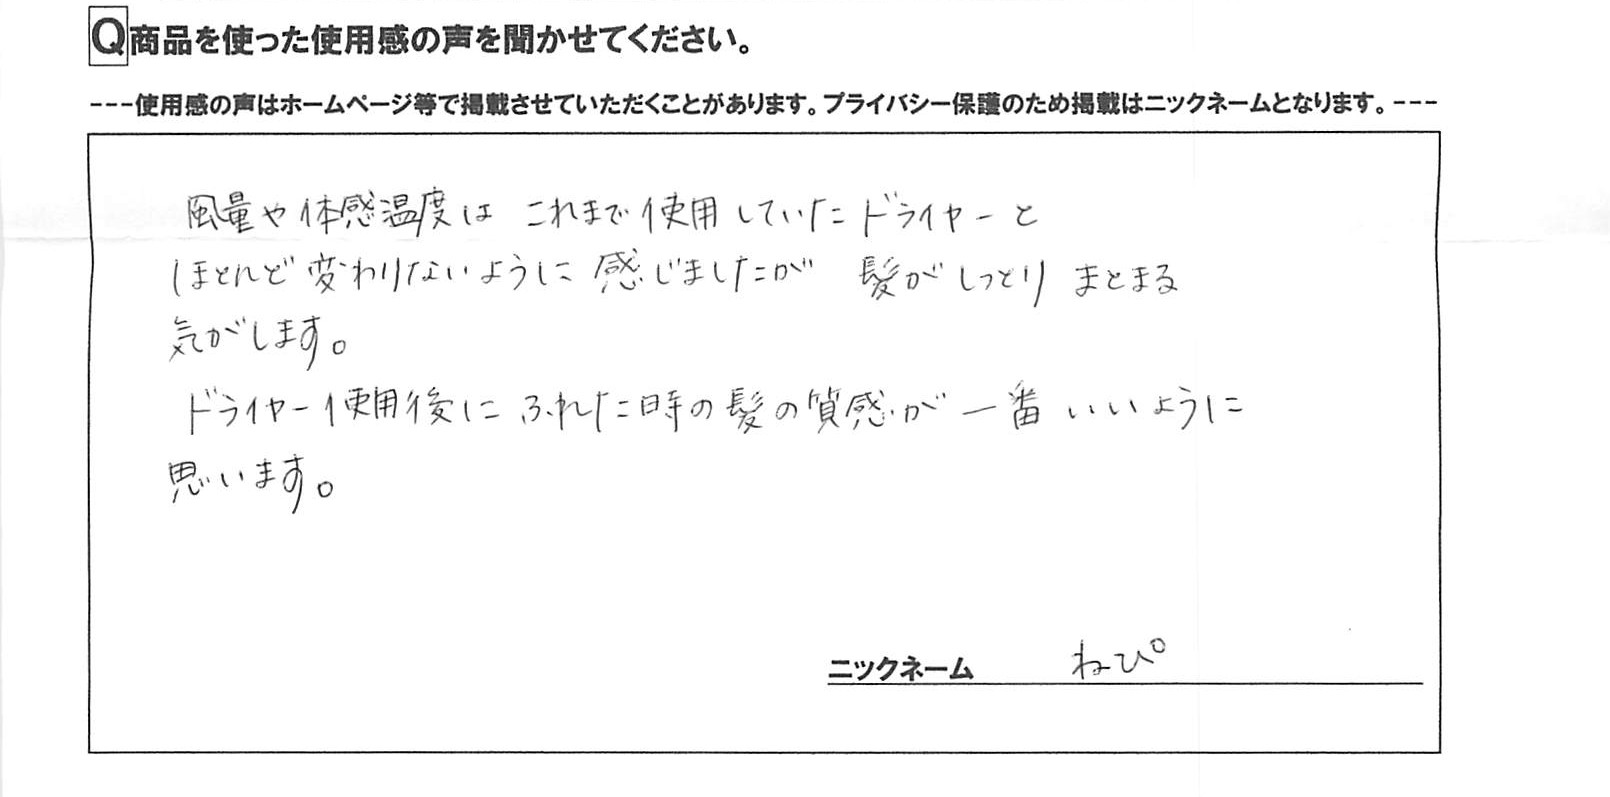 Q商品を使った使用感の声を聞かせてください。
---使用感の声はホームページ等で掲載させていただくことがあります。プライバシー保護のため掲載はニックネームとなります。---
風量や体感温度は これまで使用していたドライヤーと
ほとんど変わりないように感じましたが 髪がしっとりまとまる
気がします。
ドライヤー使用後にふれた時の髪の質感が一番いいように
思います。
ニックネーム ねぴ